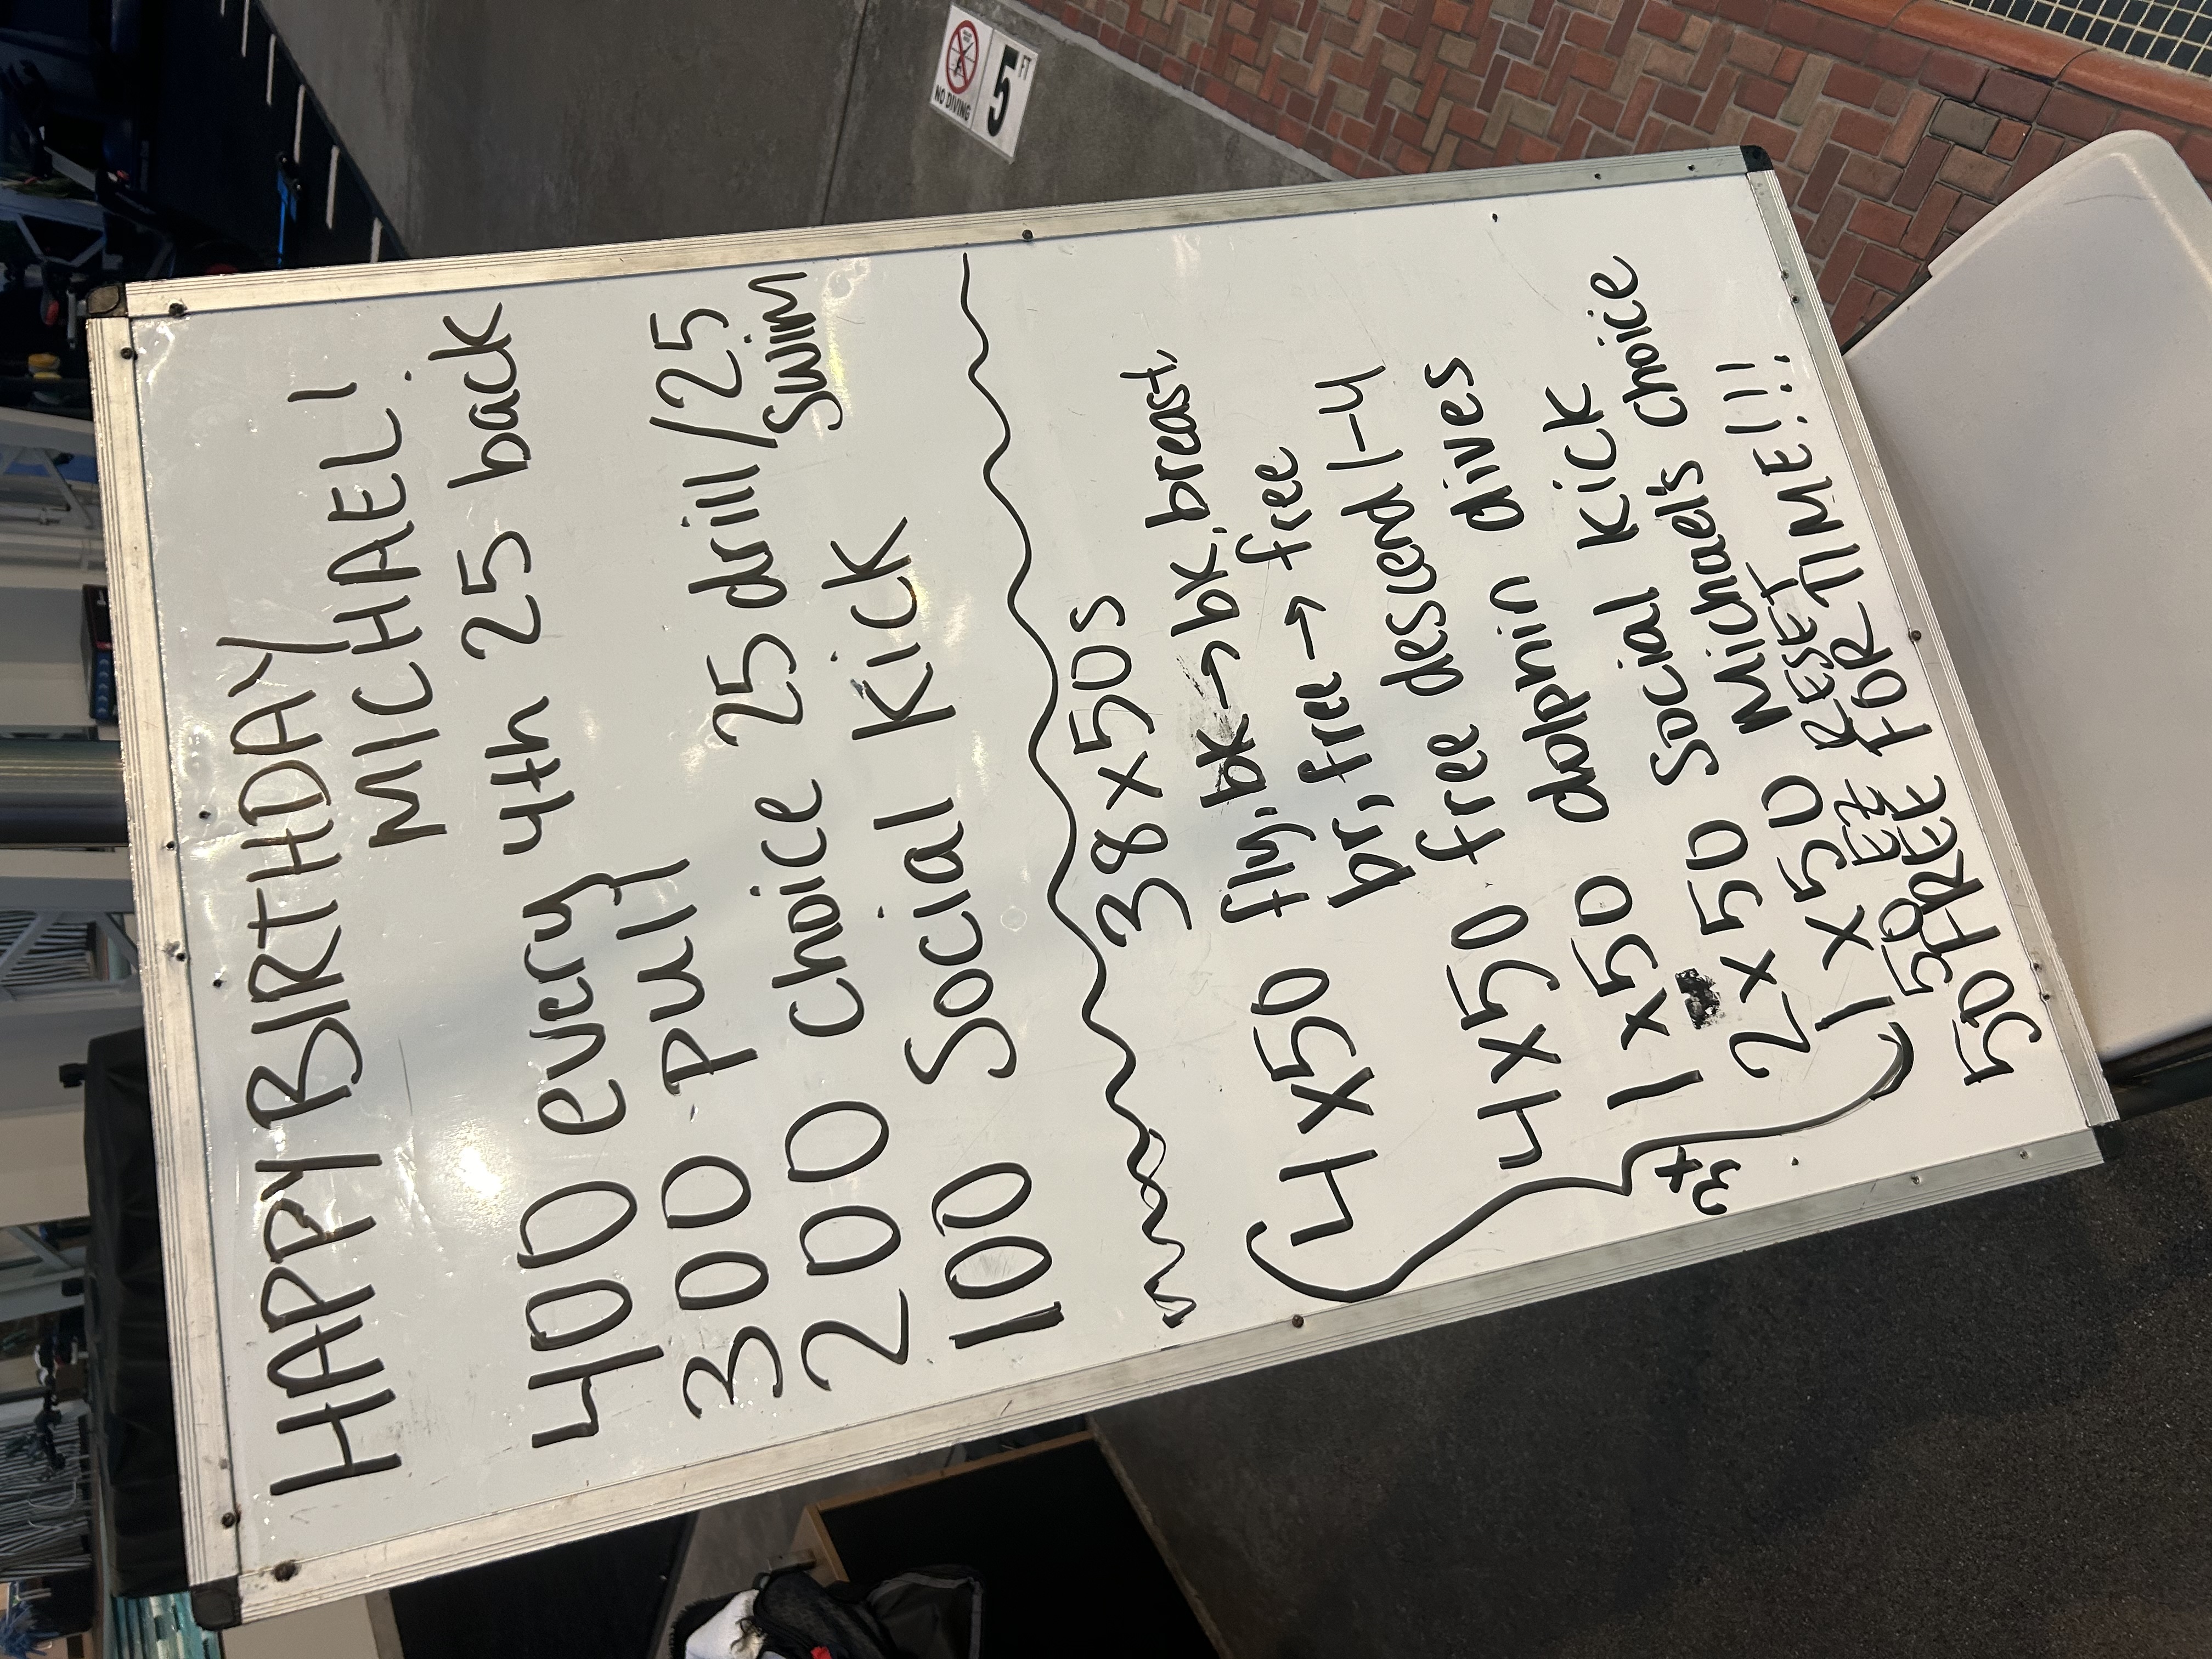 HAPPY BIRTHDAY
MICHAEL!
400 every 4th 25 back
300 pull
200 choice 25 drill/25
swim
100 Social Kick
38 x 50s
4x50 fly, bk → bk, breast.
br, free → free
4x50 free descend 1-4
1x50 dolphin dives
3x
2x50 Social Kick
1x50 Michael's Choice
50 EZ RESET
50 FREE FOR TIME!!!
NO DIVING
5 FT